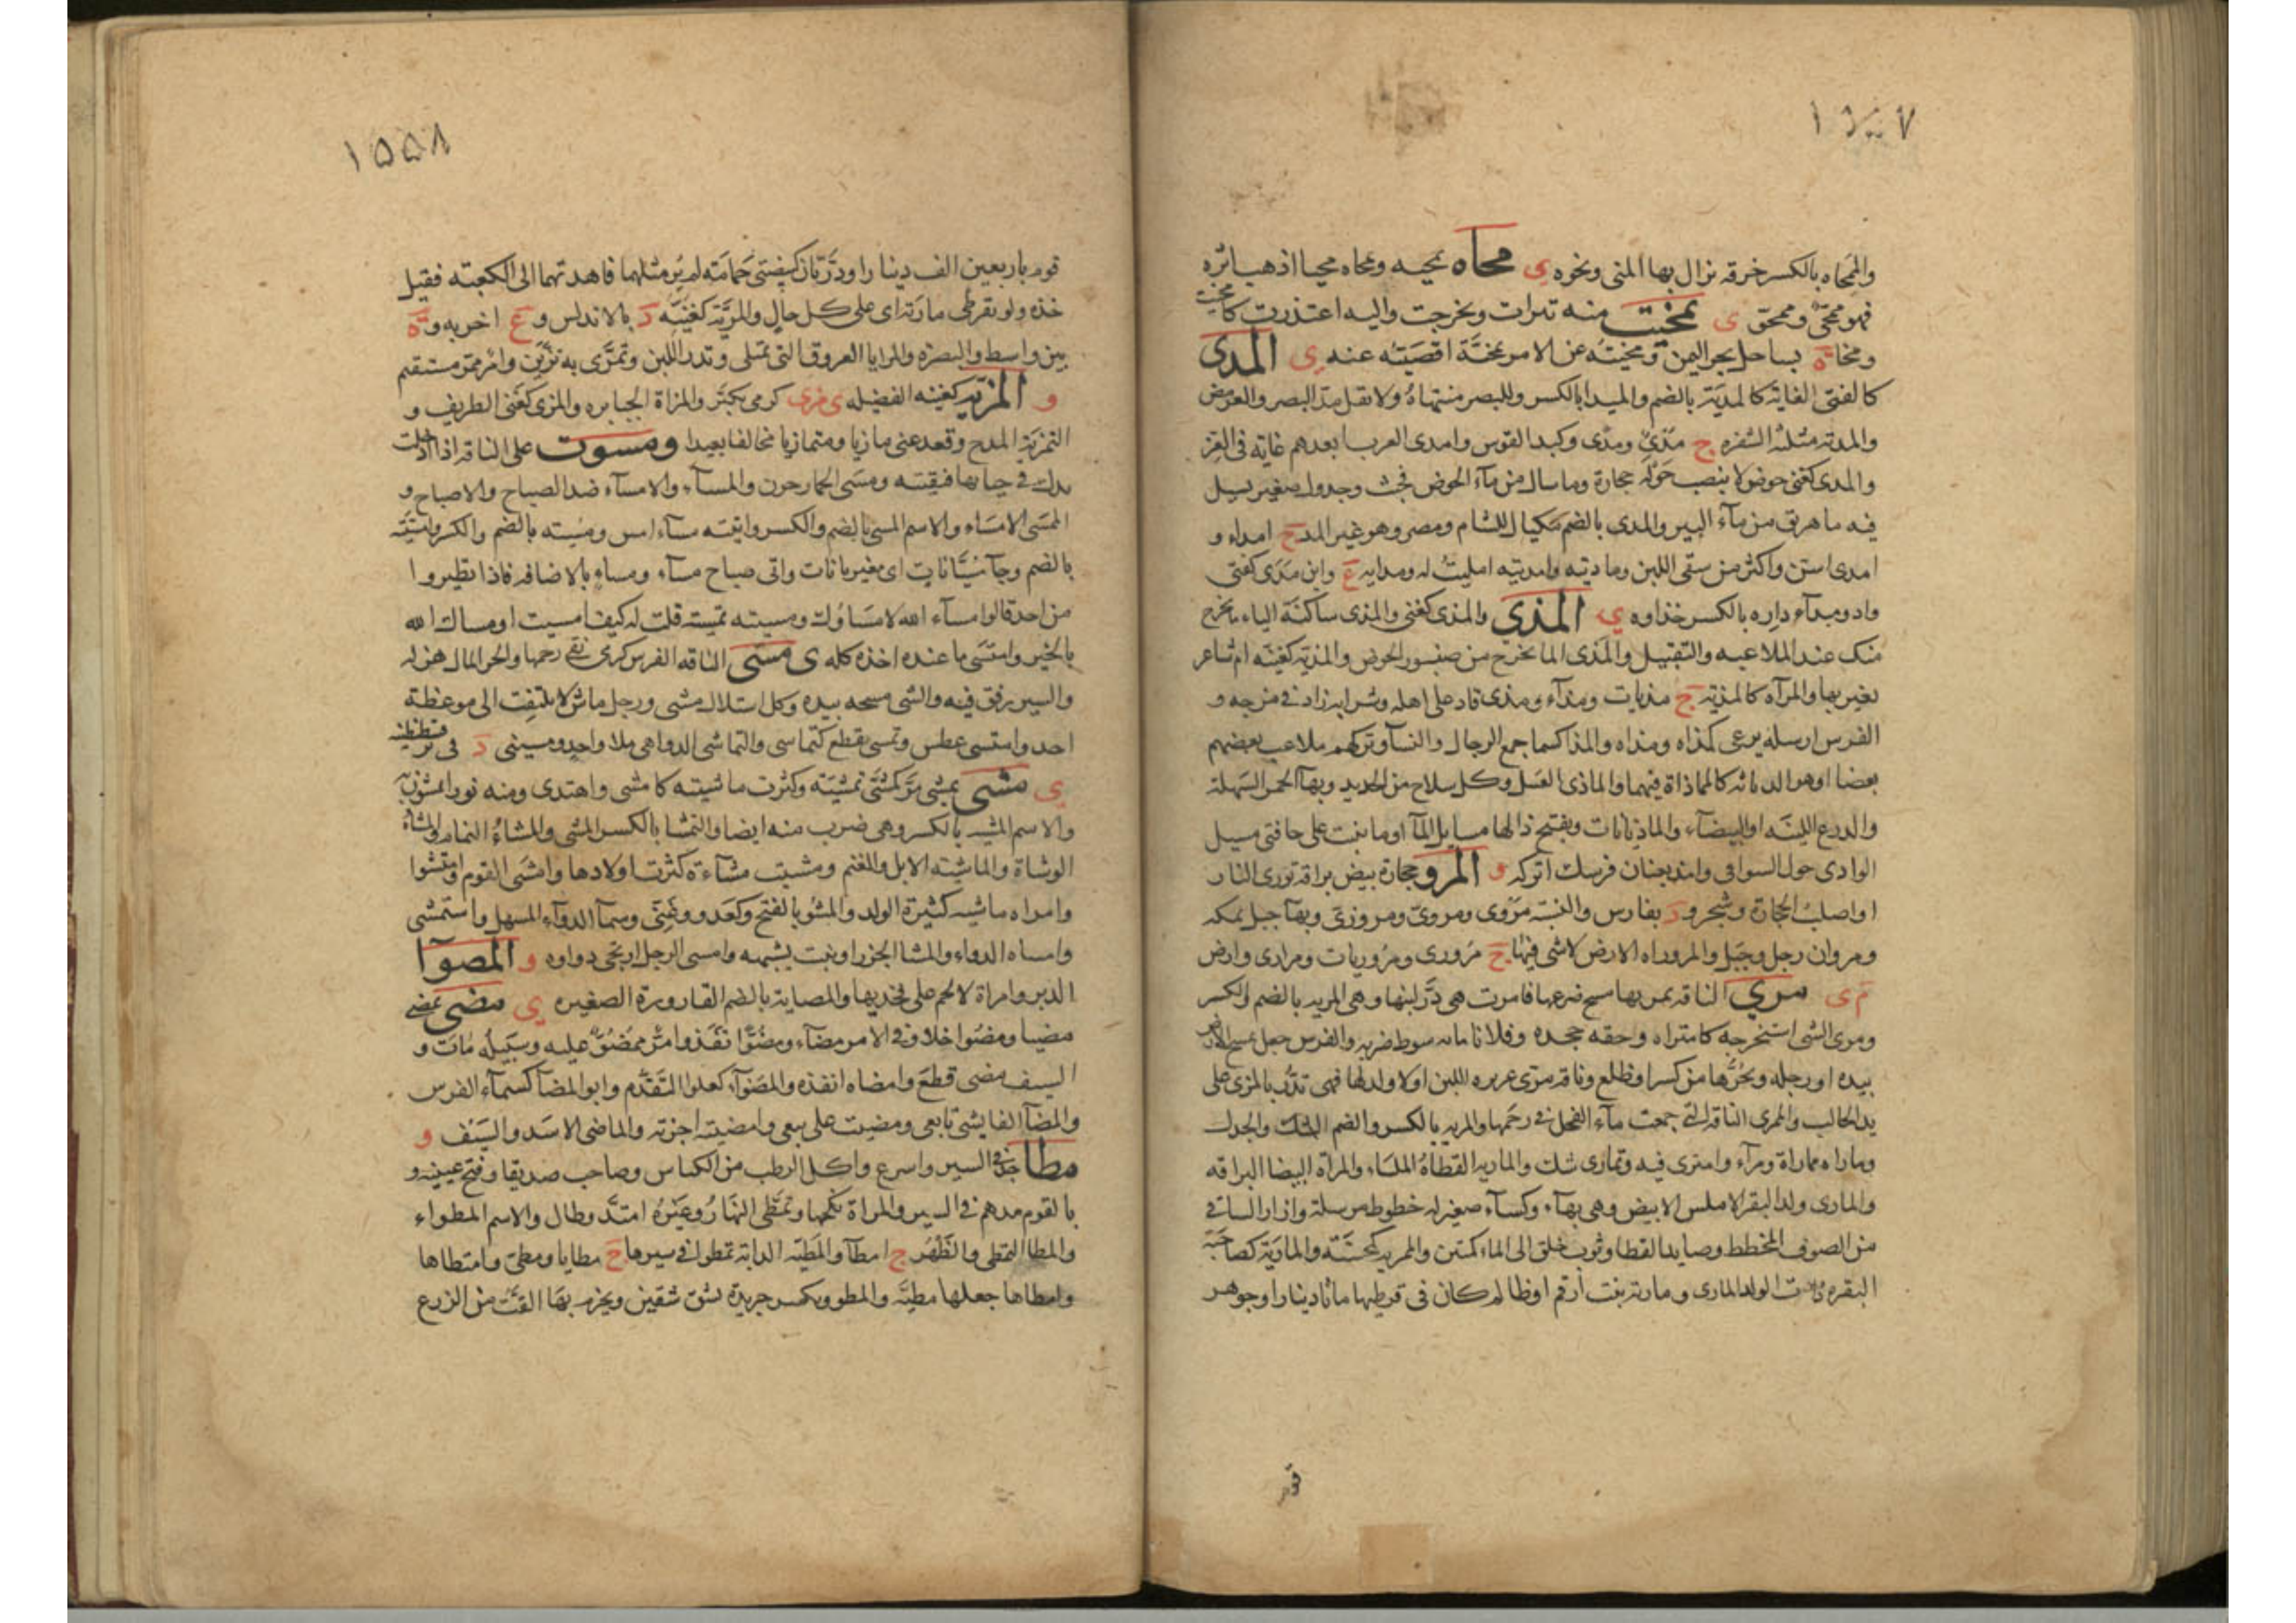 ١٥٥٧
والمِمحاه بالكسر خرقه يزال بها المنى ونحوه ى محاه يمحيه ويمحاه محيا اذهب اثره
فهو ممحىّ وممحوّ ى تمخيت منه تبرات وتخرجت واليه اعتذرت كامخيت
ومخاة ة بساحل بحر اليمن ومخيته عن الامر تمخيَّة اقصيته عنه ى المدى
كالفتى الغاية كالمدية بالضم والميدا بالكسر وللبصر منتهاهُ ولا تقل مدّ البصر والعرمض
والمدية مثلثه الشفره ج مدًى ومِدًى وكبد القوس وامدى العرب ابعدهم غاية فى الغزو
والمدى كغنى حوض لا ينصب حَوْلَه حجارة وما سال من مآء الحوض فخبث وجدول صغير يسيل
فيه ما هريق من مآء البير والمدى بالضم مكيال للشام ومصر وهو غير المد ج امداء و
امدى اسن واكثر من سقى اللبن وماديته وامديته امليتُ له ومدايه ع وابن مَدَى كفتى
واد وميدآء داره بالكسر حذاوه ى المذى والمذى كغنى والمذى ساكنة الياء ما يخرج
منك عند الملاعبه والتقبيل والمَذى الما يخرج من صنبور الحوض والمذيّة كغنيّه ام شاعر
يعير بها والمرآه كالمذيّة ج مذيات ومذآء ومذى قاد على اهله وشرابه زاد فى مزجه و
الفرس ارسله يرعى كمذاه ومذاه والمذا كسما جمع الرجال والنسآ وتركهم يلاعب بعضهم
بعضا او هو الدياثه كالمماذاة فيهما والماذى العسل وكل سلاح من الحديد وبهآ الخمر السَهلة
والدرع اللينه او البيضآء والماذيانات ويفتح ذالها مسايل المآ او ما ينبت على حافتى مسيل
الوادى حول السواقى وامذ بعنان فرسك اتركه و المرو حجارة بيض براقة تورى النار
او اصلبُ الحجارة وشجر ود بفارس والنسبَه مَرْوى ومروىّ ومروزىّ وبهآ جبل بمكه
ومروان رجل وجَبل والمروراه الارض لا شى فيها ج مَرَورى ومَرَوريات ومرارى وارض
م ى مرى الناقه يمريها مسح ضرعها فامرت هى دَرَّ لبنها وهى المريه بالضم والكسر
ومرى الشى استخرجه كامتراه وحقه جحده وفلانا مايه سوط ضربه والفرس جعل يمسح الارض
بيده او رجله ويجُرُّها من كسر او ظلع وناقة مرِىّ غزيره اللبن او لا ولد لها فهى تدُرُّ بالمَرْى على
يد الحالب والممرى الناقه التى جمعت مآء الفحل فى رحَمها والمريه بالكسر والضم الشك والجدل
وماراه مماراة ومرآء وامترى فيه وتمارى شك والماريه القطاة المَلسَاء والمرآة البيضا البراقه
والمارى ولد البقر الاملس الابيض وهى بهآء وكسآء صغير له خطوط مرسلة وازار الساقى
من الصوف المخطط وصايد القطا وثوب خلق الى الماء كمتين والممريه كمحسنَة والمارَيَة كصاحبَة
البقره ذات الولد المارى ومارية بنت ارقم او ظالم كان فى قرطيها مائتا دينار او جوهر
قوم
١٥٥٨
قوم باربعين الف دينار او دُرَّتان كبيضتى حَمَامَة لم يُرَ مثلهما فاهدتهما الى الكعبَة فقيل
خذه ولو بقرطى مارَية اى على كل حال والمريَّة كغنيَّه د بالاندلس وع اخر به وة
بين واسط والبصرة والمرايا العروق التى تمتلى وتدر اللبن وتمرَّى به تزيّن وامر ممرّ مستقيم
و المزيّة كغنيه الفضيله ى مزى كرمى تكبَّر والمزاة الجبابره والمزى كغنى الظريف و
التمزية المدح وقعد عنى مازيا ومتمازيا مخالفا بعيدا ومسوت على الناقه اذا ادخلت
يدك فى حيايها فنقيته ومسَى الحمار حرن والمسآء والامسآء ضد الصباح والاصباح و
الممسَى الامسَاء والاسم المسى بالضم والكسر واتيته مسآء امس ومُسيته بالضم والكسر وامسيته
بالضم وجآ مُسَيَّانات اى مغيربانات واتى صباح مسآء ومساءِ بالاضافه فاذا تطيروا
من احد قالوا مسآء الله لا مسَاوُك ومسيته تمسيَة قلت له كيف امسيت او مساك الله
بالخير وامتسَى ما عنده اخذه كله ى مسى الناقه الفرس كرمى نقى رحمها والحر المال هزله
والسير رفق فيه والشى مسحه بيده وكل استلال مسى ورجل ماس لا يلتفت الى موعظة
احد وامتسى عطس وتمسى تقطع كتماسى والتماسى الدواهى بلا واحد ومسينى د فى بر قسطنطينية
ى مشى يمشى مَرَّ كمشَّى تمشيَة وكثرت ماشيته كامشى واهتدى ومنه نورا تمشون به
والاسم المشيه بالكسر وهى ضرب منه ايضا والتمشا بالكسر المشى والمشاءُ النمام والمشاة
الوشاة والماشيه الابل والغنم ومشيت مشآءة كثرت اولادها وامشَى القوم وامتشوا
وامراه ماشيه كثيرة الولد والمشو بالفتح وكعَدو وغنِىّ وسمآ الدوآء المسهل واستمشى
وامشاه الدواء والمشا الجزر او نبت يشبهه وامشى الرجل ارتجى دواوه و المصوآ
الدبر وامراة لا لحم على فخذيها والمصاية بالضم القارورة الصغيره ى مضى يمضى
مضيا ومضُوا خلا وفى الامر مضآء ومضُوًّا نفَذ وامرٌ ممضُوٌّ عليه وسَبيله مَات و
السيف مضى قطعَ وامضاه انفذه والمضَوآء كغلوا التقدُّم وابو المضآ كسمآء الفرس
والمضآ الفايشى تابعى ومضيت على بيعى وامضيته اجزته والماضى الاسَد والسَيف و
مطا جدّ فى السير واسرع واكل الرطب من الكباس وصاحب صديقا وفتح عينيه و
بالقوم مدهم فى السير والمراة نكحها وتمطَّى النهارُ وغيرُهُ امتدَّ وطال والاسم المطواء
والمطا التمطى والظَهْر ج امطآ والمَطيّه الدابة تمطو فى سيرها ج مطايا ومطىّ وامتطاها
وامطاها جعلها مطيَّه والمطو ويكسر جريدة تشق شقين ويحزم بها القتّ من الزرع